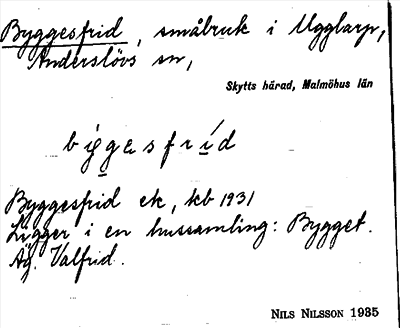 Byggesfrid, småbruk i Ugglarp,
Anderslövs sn,
Skytts härad, Malmöhus län
biggesfríd
Byggesfrid ek, kb 1931
Ligger i en hussamling: Bygget.
Äg. Valfrid.
NILS NILSSON 1935